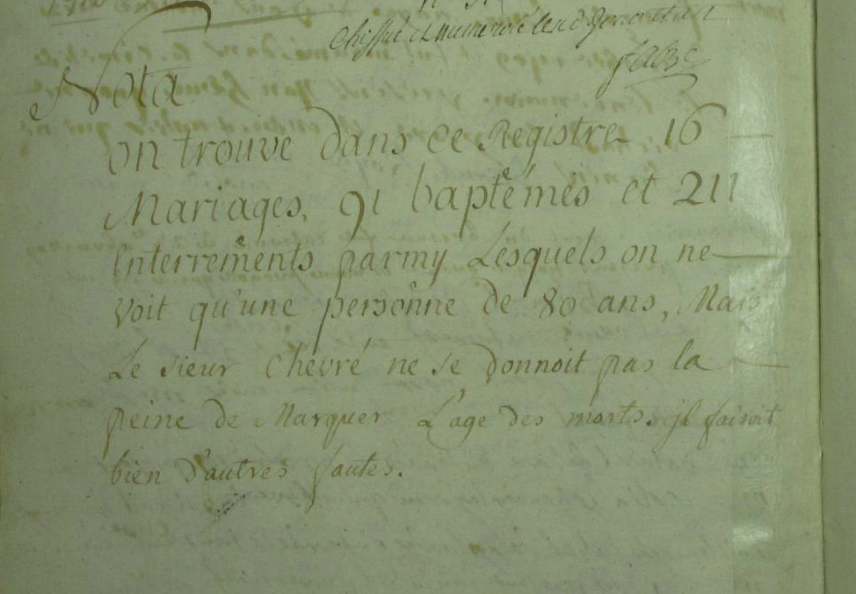 chiffré et numeroté
Nota
on trouve dans ce Registre 16
Mariages, 91 baptêmes et 211
Enterrements parmy Lesquels on ne
voit qu'une personne de 80 ans, Mais
Le sieur Chevré ne se donnoit pas la
peine de Marquer L'age des morts. jl faisoit
bien d'autres fautes.